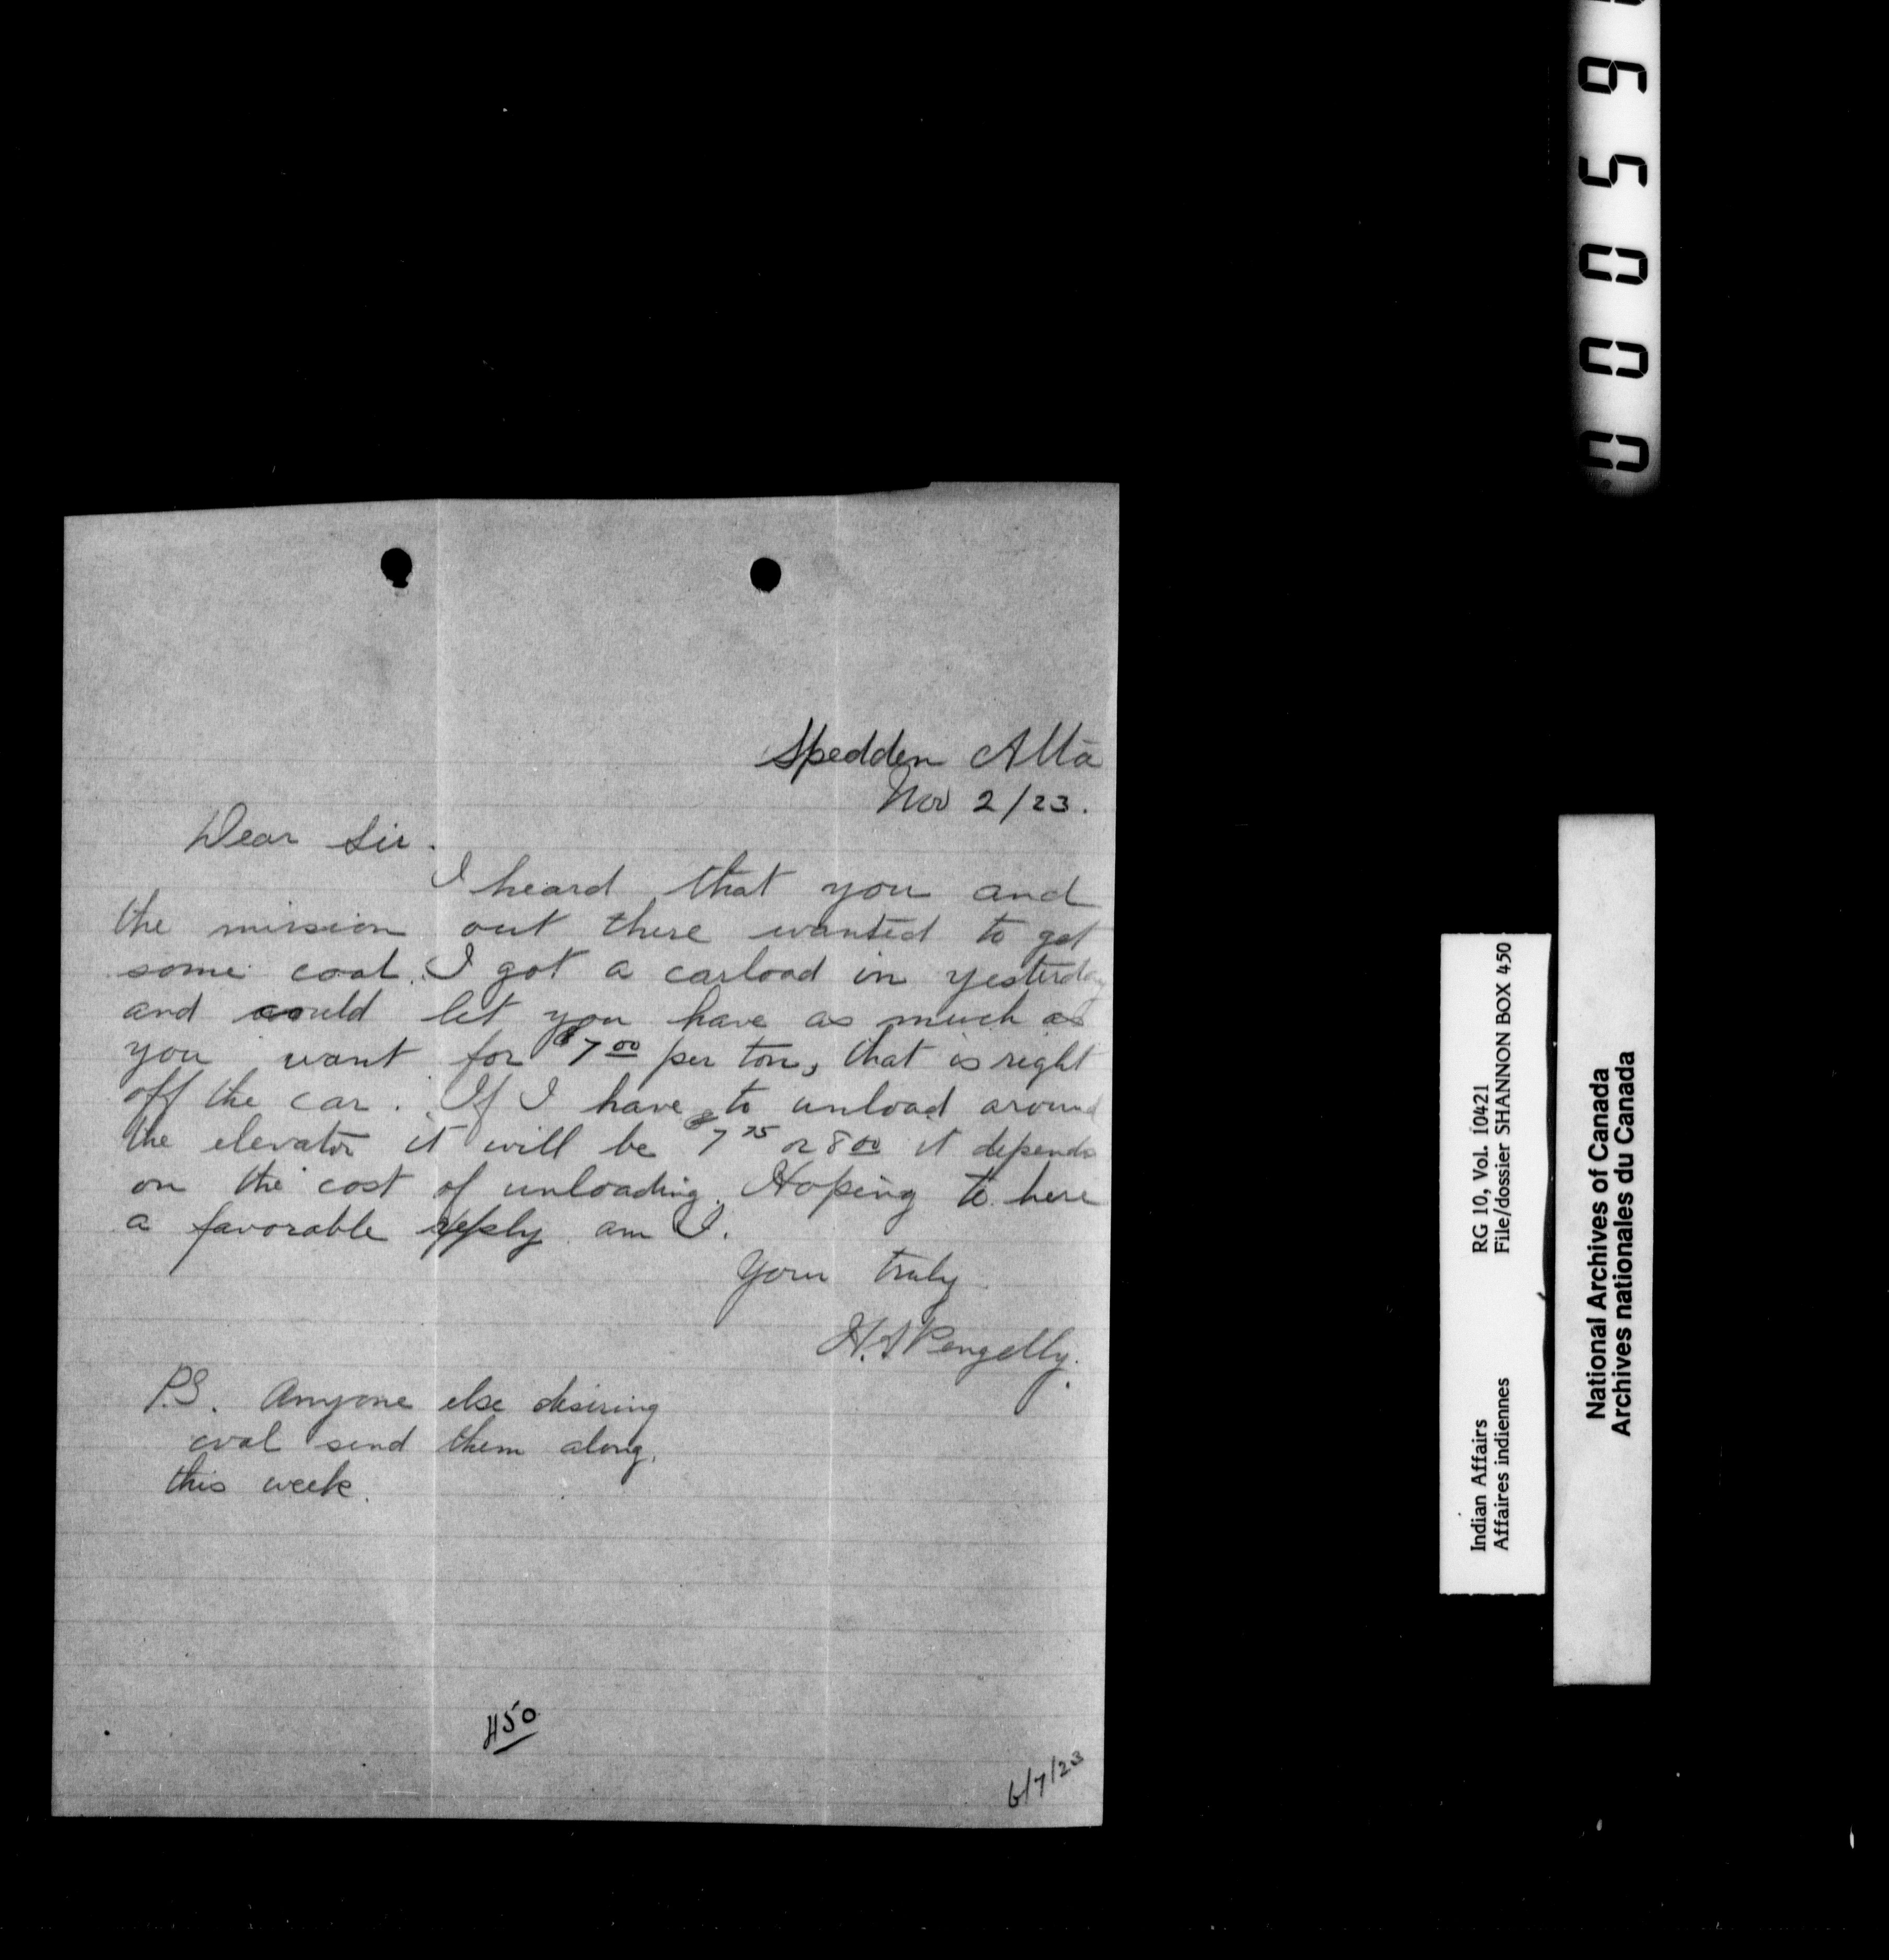 Spedden Alta
Nov 2/23.
Dear Sir.
I heard that you and
the mission out there wanted to get
some coal. I got a carload in yesterday
and could let you have as much as
you want for $7 00 per ton, that is right
off the car. If I have to unload around
the elevator it will be $7 75 or 8 00 it depends
on the cost of unloading. Hoping to here
a favorable reply am I.
Your truly
H. A Pengelly.
P.S. Anyone else desiring
coal send them along,
this week.
450
6/7/23
Indian Affairs RG 10, Vol. 10421
Affaires indiennes File/dossier SHANNON BOX 450
National Archives of Canada
Archives nationales du Canada